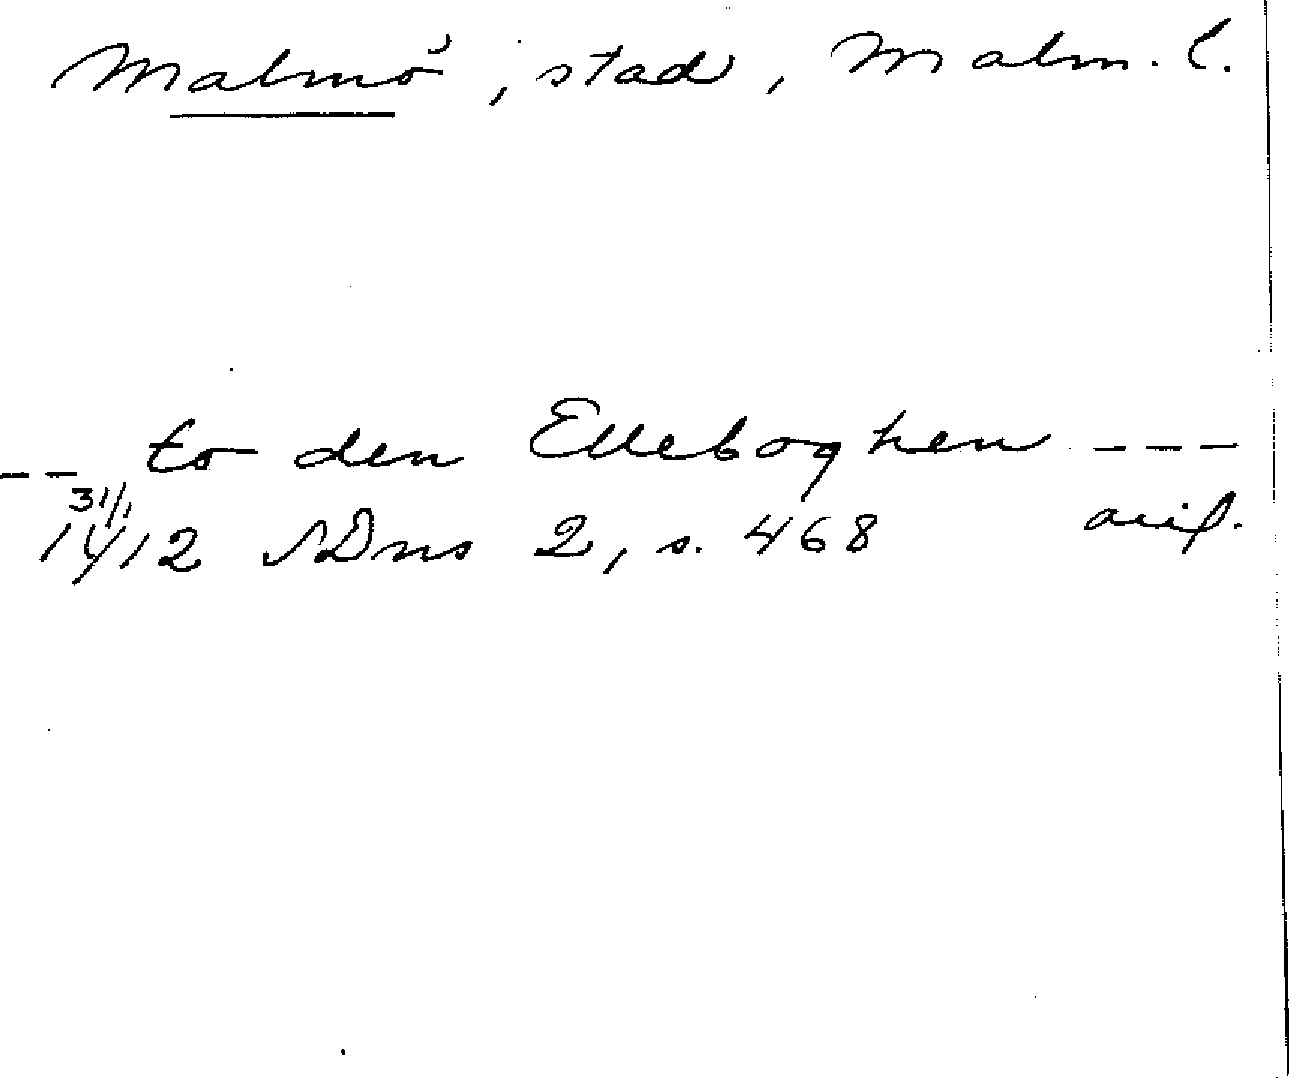 Malmö, stad, Malm. l.
-- to den Elleboghen ---
31/1 1412 SDns 2, s. 468 avif.